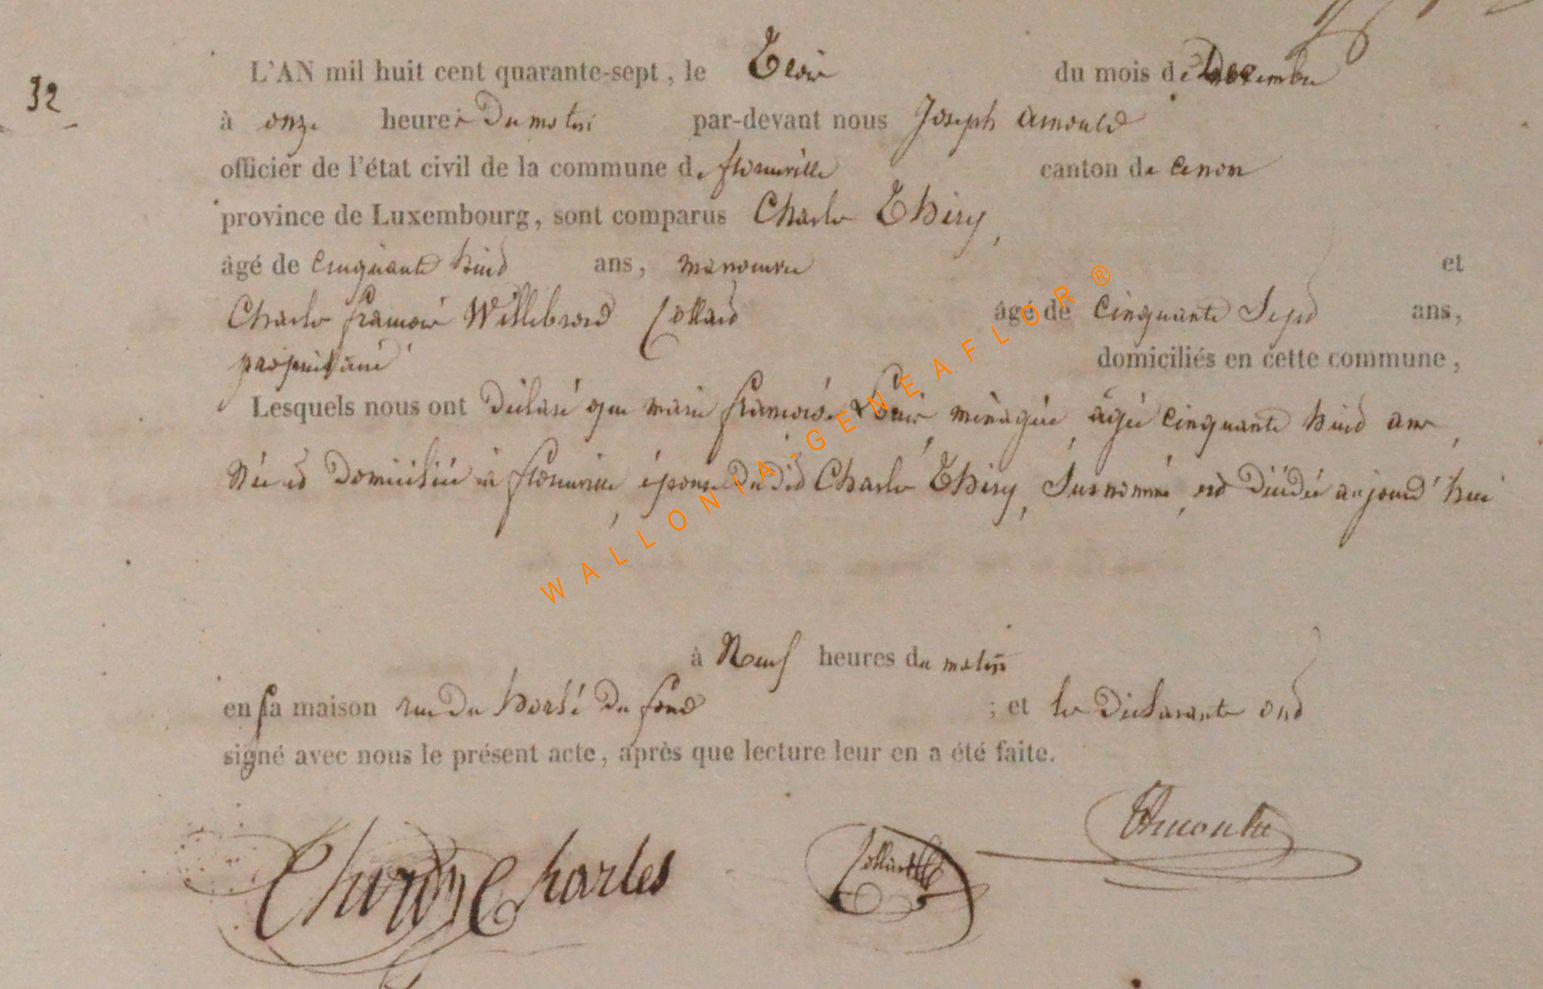 32
L'AN mil huit cent quarante-sept, le Trois du mois de Décembre
à onze heures du matin par-devant nous Joseph Arnould
officier de l'état civil de la commune de florenville canton de
province de Luxembourg, sont comparus Charles Thiry,
âgé de cinquante huit ans, manouvrier et
Charles françois Willibrord Collard âgé de cinquante Sept ans,
propriétaire domiciliés en cette commune,
Lesquels nous ont déclaré que marie françoise ménagère, âgée cinquante huit ans,
Née et Domiciliée à florenville, épouse du dit Charles Thiry, Surnommé, est Décédée aujourd'hui
à Neuf heures du matin
en sa maison rue du du fond ; et les Déclarants ont
signé avec nous le présent acte, après que lecture leur en a été faite.
Thiry Charles
Collard
Arnould
WALLONIA-GENEAFLOR®